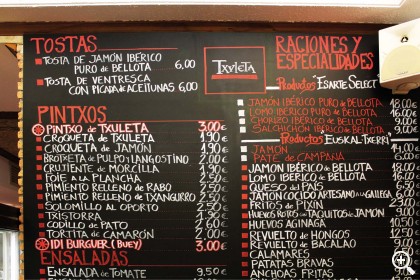 TOSTAS
TOSTA DE JAMÓN IBÉRICO
PURO DE BELLOTA 6,00
TOSTA DE VENTRESCA
CON PICADA DE ACEITUNAS 6,00
PINTXOS
PINTXO DE TXULETA 3,00€
CROQUETA DE TXULETA 1,90€
CROQUETA DE JAMÓN 1,90€
BROTXETA DE PULPO Y LANGOSTINO 2,00€
CRUJIENTE DE MORCILLA 1,90€
FOIE A LA PLANCHA
PIMIENTO RELLENO DE RABO 2,50€
PIMIENTO RELLENO DE TXANGURRO 2,50€
SOLOMILLO AL OPORTO
TXISTORRA
CODILLO DE PATO
TORTITA DE CAMARON 2,00€
IDI BURGUER (BUEY) 3,00€
ENSALADAS
ENSALADA DE TOMATE 9,50€
TXULETA
RACIONES Y
ESPECIALIDADES
PRODUCTOS ESARTE SELECT
JAMÓN IBÉRICO PURO DE BELLOTA
LOMO IBÉRICO PURO DE BELLOTA
CHORIZO IBÉRICO DE BELLOTA
SALCHICHON IBÉRICO DE BELLOTA
PRODUCTOS EUSKAL-TXERRI
JAMON
PATE DE CAMPAÑA
JAMON IBERICO DE BELLOTA
LOMO IBERICO DE BELLOTA
QUESO DEL PAIS
JAMON COCIDO ARTESANO A LA GALLEGA
FRITOS DE PIXIN
HUEVOS ROTOS CON TAQUITOS DE JAMON
HUEVOS AGINAGA
REVUELTO DE HONGOS
REVUELTO DE BACALAO
CALAMARES
PATATAS BRAVAS
ANCHOAS FRITAS